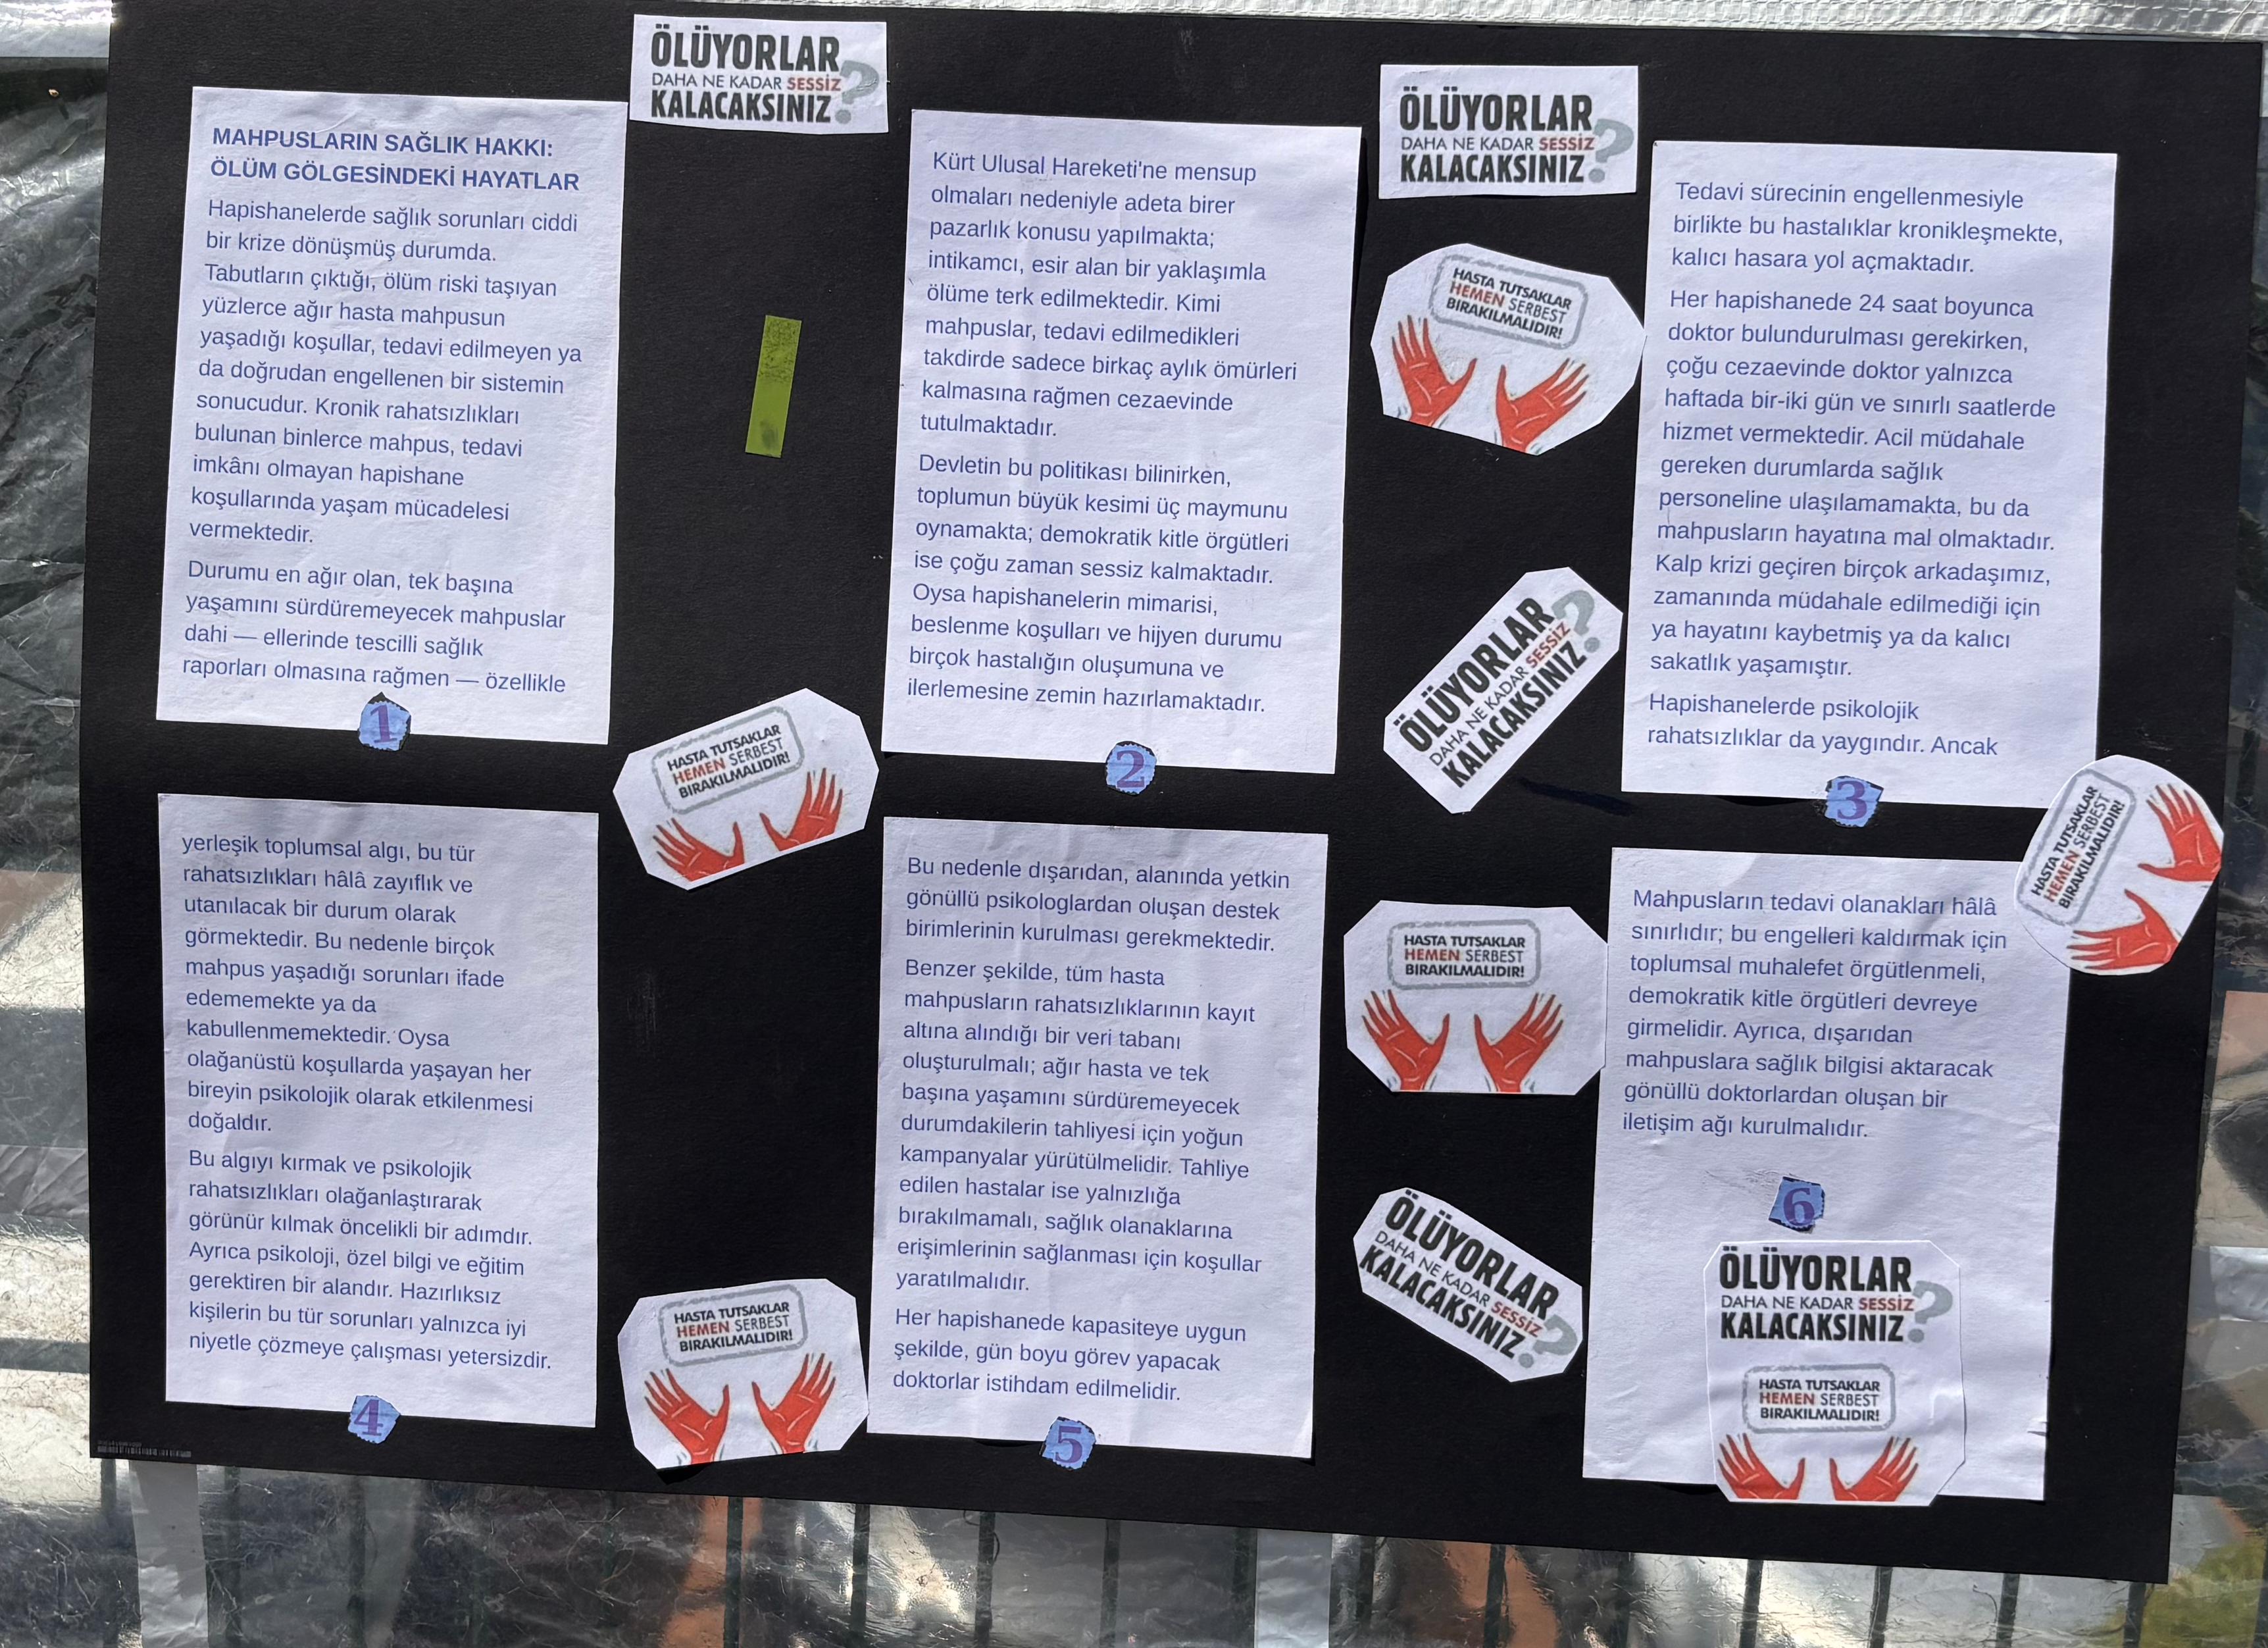 ÖLÜYORLAR
DAHA NE KADAR SESSİZ
KALACAKSINIZ?
ÖLÜYORLAR
DAHA NE KADAR SESSİZ
KALACAKSINIZ?
MAHPUSLARIN SAĞLIK HAKKI:
ÖLÜM GÖLGESİNDEKİ HAYATLAR
Hapishanelerde sağlık sorunları ciddi
bir krize dönüşmüş durumda.
Tabutların çıktığı, ölüm riski taşıyan
yüzlerce ağır hasta mahpusun
yaşadığı koşullar, tedavi edilmeyen ya
da doğrudan engellenen bir sistemin
sonucudur. Kronik rahatsızlıkları
bulunan binlerce mahpus, tedavi
imkânı olmayan hapishane
koşullarında yaşam mücadelesi
vermektedir.
Durumu en ağır olan, tek başına
yaşamını sürdüremeyecek mahpuslar
dahi — ellerinde tescilli sağlık
raporları olmasına rağmen — özellikle
1
Kürt Ulusal Hareketi'ne mensup
olmaları nedeniyle adeta birer
pazarlık konusu yapılmakta;
intikamcı, esir alan bir yaklaşımla
ölüme terk edilmektedir. Kimi
mahpuslar, tedavi edilmedikleri
takdirde sadece birkaç aylık ömürleri
kalmasına rağmen cezaevinde
tutulmaktadır.
Devletin bu politikası bilinirken,
toplumun büyük kesimi üç maymunu
oynamakta; demokratik kitle örgütleri
ise çoğu zaman sessiz kalmaktadır.
Oysa hapishanelerin mimarisi,
beslenme koşulları ve hijyen durumu
birçok hastalığın oluşumuna ve
ilerlemesine zemin hazırlamaktadır.
2
HASTA TUTSAKLAR
HEMEN SERBEST
BIRAKILMALIDIR!
ÖLÜYORLAR
DAHA NE KADAR SESSİZ
KALACAKSINIZ?
Tedavi sürecinin engellenmesiyle
birlikte bu hastalıklar kronikleşmekte,
kalıcı hasara yol açmaktadır.
Her hapishanede 24 saat boyunca
doktor bulundurulması gerekirken,
çoğu cezaevinde doktor yalnızca
haftada bir-iki gün ve sınırlı saatlerde
hizmet vermektedir. Acil müdahale
gereken durumlarda sağlık
personeline ulaşılamamakta, bu da
mahpusların hayatına mal olmaktadır.
Kalp krizi geçiren birçok arkadaşımız,
zamanında müdahale edilmediği için
ya hayatını kaybetmiş ya da kalıcı
sakatlık yaşamıştır.
Hapishanelerde psikolojik
rahatsızlıklar da yaygındır. Ancak
3
HASTA TUTSAKLAR
HEMEN SERBEST
BIRAKILMALIDIR!
HASTA TUTSAKLAR
HEMEN SERBEST
BIRAKILMALIDIR!
yerleşik toplumsal algı, bu tür
rahatsızlıkları hâlâ zayıflık ve
utanılacak bir durum olarak
görmektedir. Bu nedenle birçok
mahpus yaşadığı sorunları ifade
edememekte ya da
kabullenmemektedir. Oysa
olağanüstü koşullarda yaşayan her
bireyin psikolojik olarak etkilenmesi
doğaldır.
Bu algıyı kırmak ve psikolojik
rahatsızlıkları olağanlaştırarak
görünür kılmak öncelikli bir adımdır.
Ayrıca psikoloji, özel bilgi ve eğitim
gerektiren bir alandır. Hazırlıksız
kişilerin bu tür sorunları yalnızca iyi
niyetle çözmeye çalışması yetersizdir.
4
HASTA TUTSAKLAR
HEMEN SERBEST
BIRAKILMALIDIR!
Bu nedenle dışarıdan, alanında yetkin
gönüllü psikologlardan oluşan destek
birimlerinin kurulması gerekmektedir.
Benzer şekilde, tüm hasta
mahpusların rahatsızlıklarının kayıt
altına alındığı bir veri tabanı
oluşturulmalı; ağır hasta ve tek
başına yaşamını sürdüremeyecek
durumdakilerin tahliyesi için yoğun
kampanyalar yürütülmelidir. Tahliye
edilen hastalar ise yalnızlığa
bırakılmamalı, sağlık olanaklarına
erişimlerinin sağlanması için koşullar
yaratılmalıdır.
Her hapishanede kapasiteye uygun
şekilde, gün boyu görev yapacak
doktorlar istihdam edilmelidir.
5
HASTA TUTSAKLAR
HEMEN SERBEST
BIRAKILMALIDIR!
ÖLÜYORLAR
DAHA NE KADAR SESSİZ
KALACAKSINIZ?
Mahpusların tedavi olanakları hâlâ
sınırlıdır; bu engelleri kaldırmak için
toplumsal muhalefet örgütlenmeli,
demokratik kitle örgütleri devreye
girmelidir. Ayrıca, dışarıdan
mahpuslara sağlık bilgisi aktaracak
gönüllü doktorlardan oluşan bir
iletişim ağı kurulmalıdır.
6
ÖLÜYORLAR
DAHA NE KADAR SESSİZ
KALACAKSINIZ?
HASTA TUTSAKLAR
HEMEN SERBEST
BIRAKILMALIDIR!